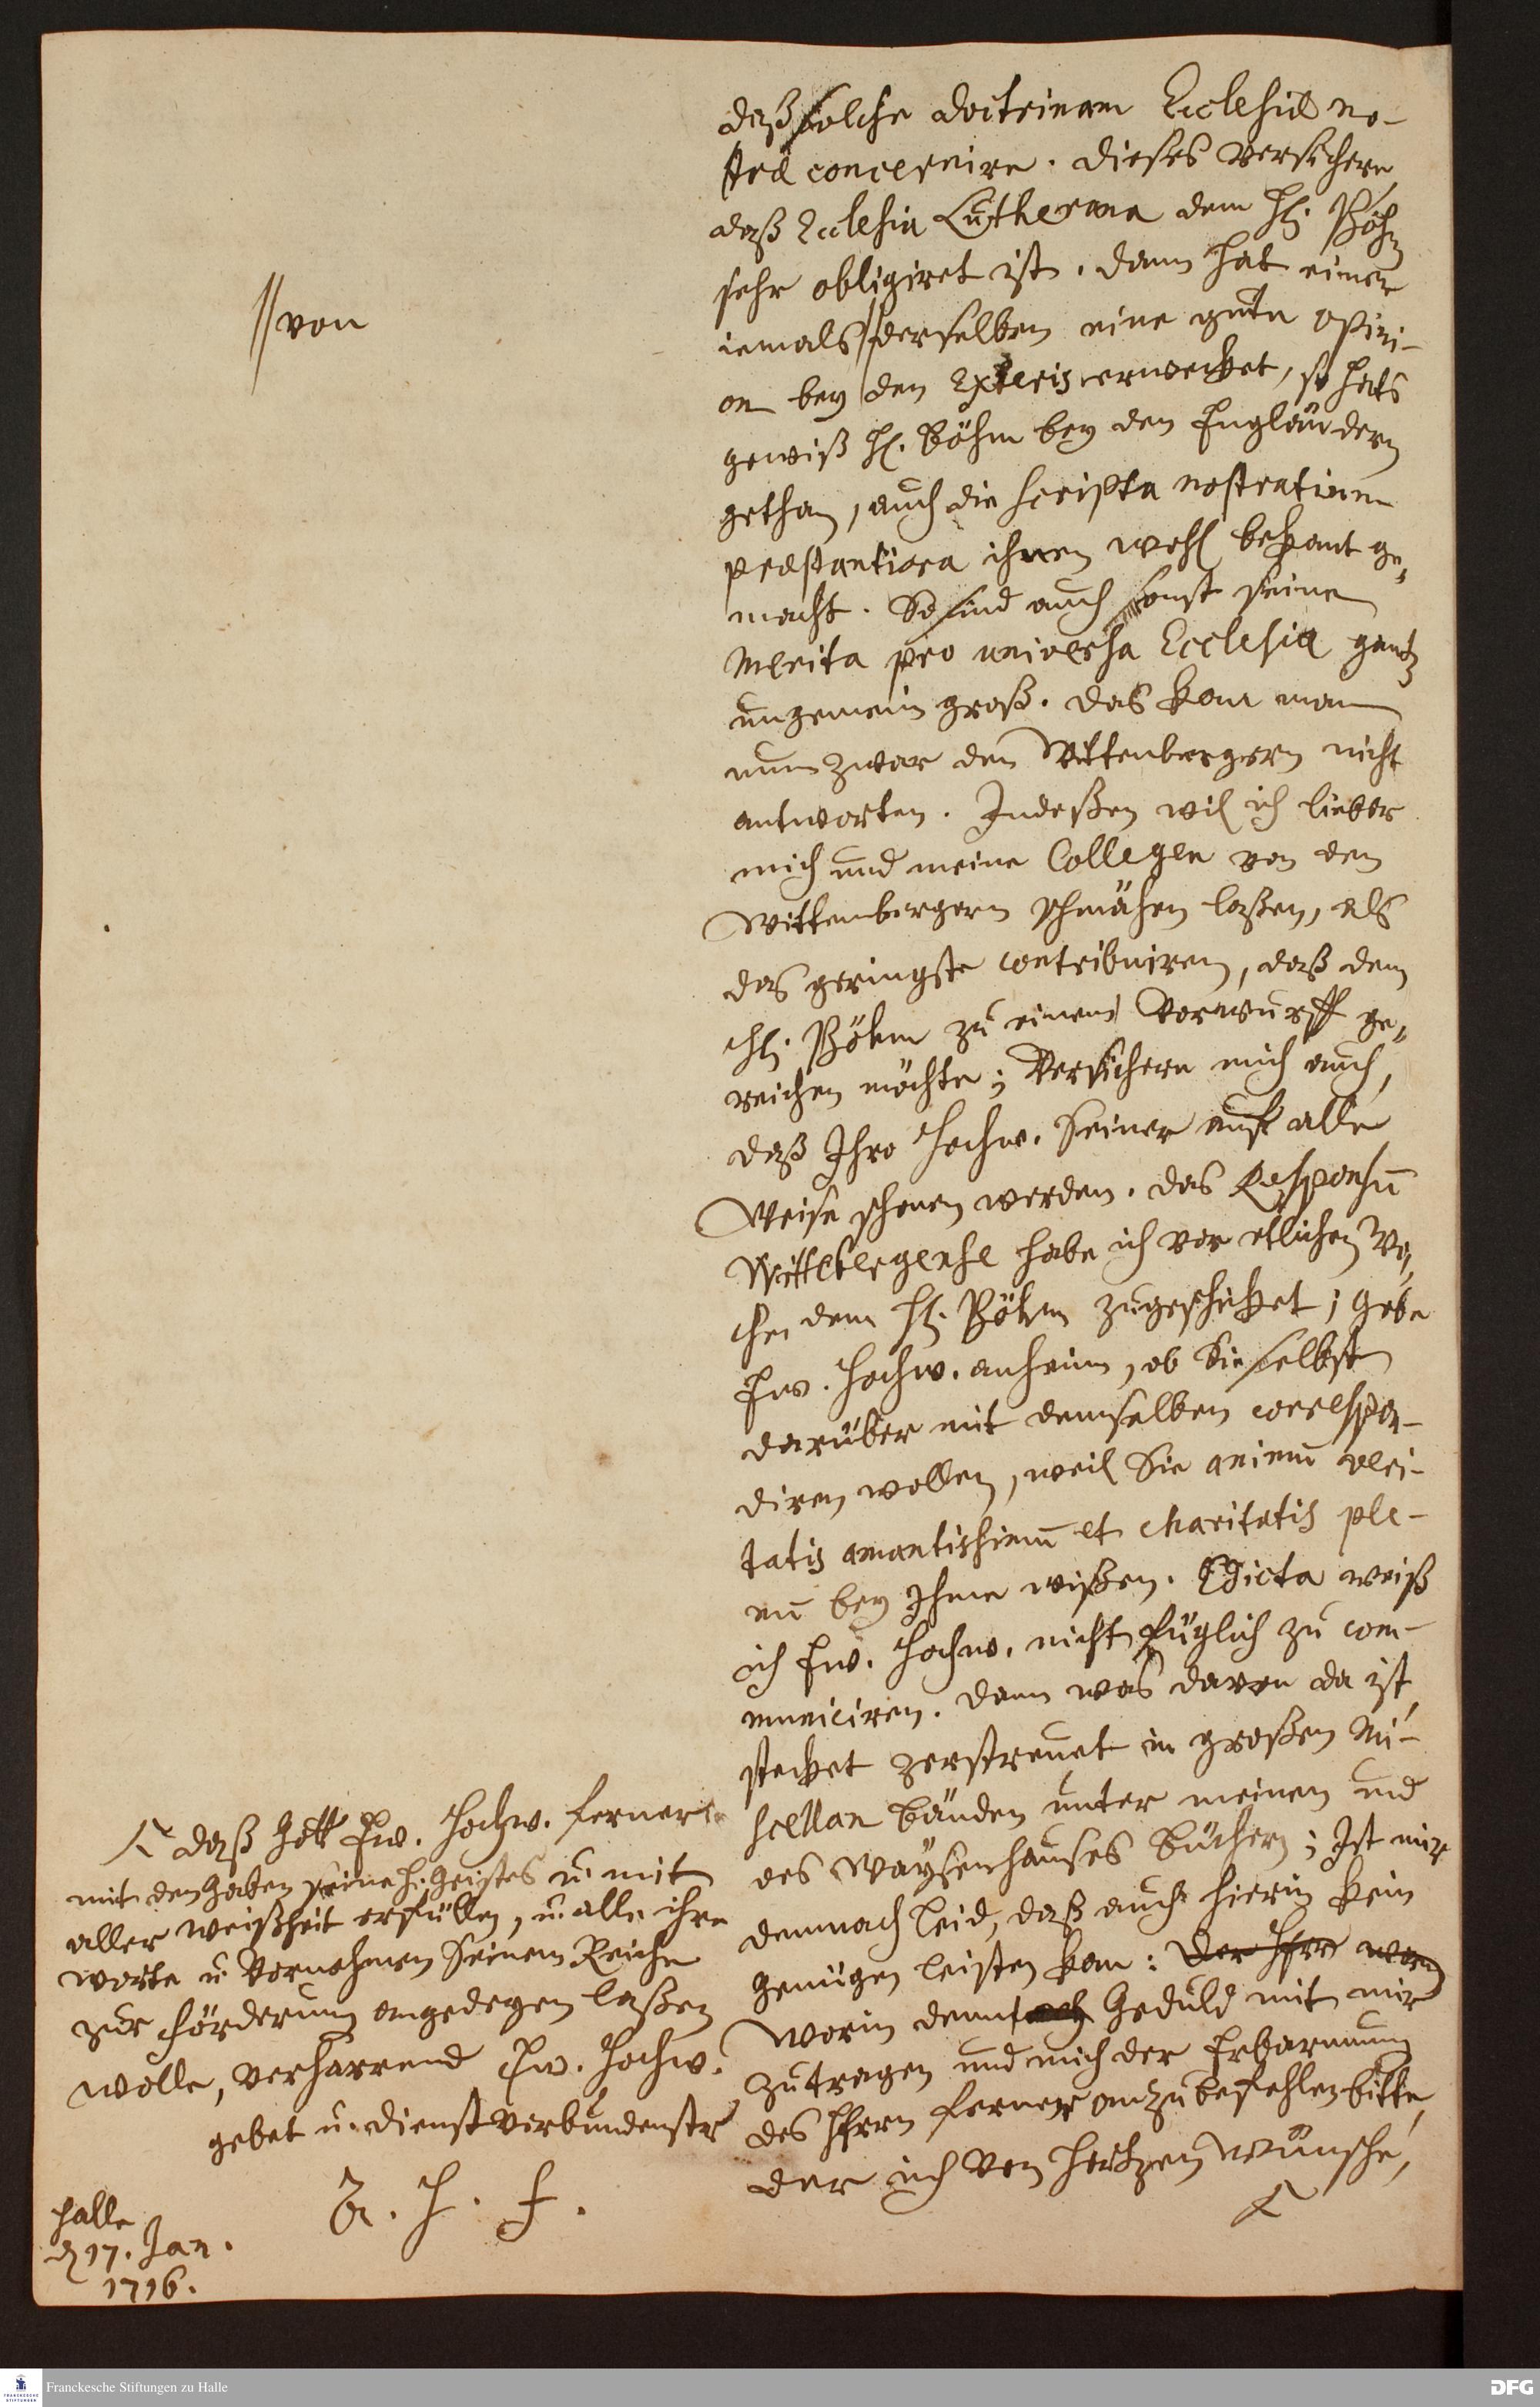 daß solche doctrinam Ecclesiae no-
strae concernire. Dieses versichere
daß Ecclesia Lutherana dem H. Böhm
sehr obligiret ist. Dann hat einer
iemals // derselben eine gute opini-
on bey den Exteris erwecket, so hats
gewiß H. Böhm bey den Engländern
gethan, auch die scripta nostratium
praestantiora ihnen wohl bekant ge-
macht. So sind auch sonst seine
Merita pro universa Ecclesia gantz
ungemein groß. Das kan man
nun zwar den Wittenbergern nicht
antworten. Indeßen wil ich lieber
mich und meine Collegen von den
Wittenbergern schmähen laßen, als
das geringste contribuiren, daß dem
H. Böhm zu einem Vorwurff ge-
reichen möchte; Versichere mich auch,
daß Ihro Hochw. Seiner auff alle
Weise schonen werden. Das Responsū
Wittebergense habe ich vor etlichen Wo-
chen dem H. Böhm zugeschicket; gebe
Ew. Hochw. anheim, ob Sie selbst
darüber mit demselben correspon-
diren wollen, weil Sie animū veri-
tatis amantissimū et charitatis ple-
nū bey Ihm wißen. Edicta weiß
ich Ew. Hochw. nicht füglich zu com-
municiren. Dann was davon da ist,
stecket zerstreuet in großen Mi-
scellan bänden unter meinen und
des Waysenhauses Büchern; Ist mir
demnach leid, daß auch hierin kein
genügen leisten kan: Der Herr
Worin denn Geduld mit mir
zu tragen und mich der Erbarmung
des Herrn ferner anzubefehlen bitte,
der ich von Hertzen wünsche,
// von
daß Gott Ew. Hochw. ferner
mit den Gaben seines H. Geistes u. mit
aller Weißheit erfüllen, u. alle ihre
Worte u. Vornehmen Seinem Reiche
zur Förderung angedeyen laßen
wolle, verharrend Ew. Hochw.
gebet u. dienstverbundenster
A. H. F.
Halle
d 17. Jan.
1716.
Franckesche Stiftungen zu Halle
DFG